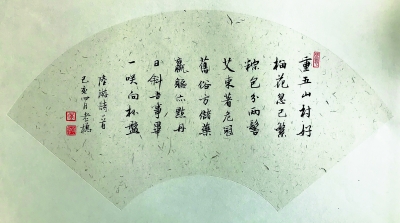 重五山村好
榴花忽已繁
粽包分兩髻
艾束著危冠
舊俗方儲藥
羸軀亦點丹
日斜吾事畢
一咲向杯盤
陸游詩一首
己亥四月